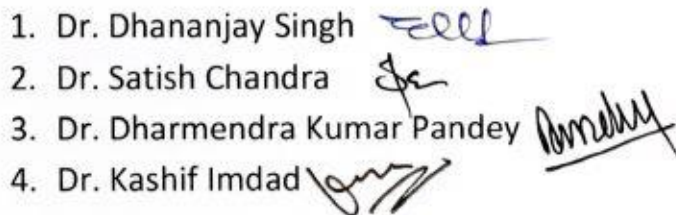 1. Dr. Dhananjay Singh
2. Dr. Satish Chandra
3. Dr. Dharmendra Kumar Pandey
4. Dr. Kashif Imdad